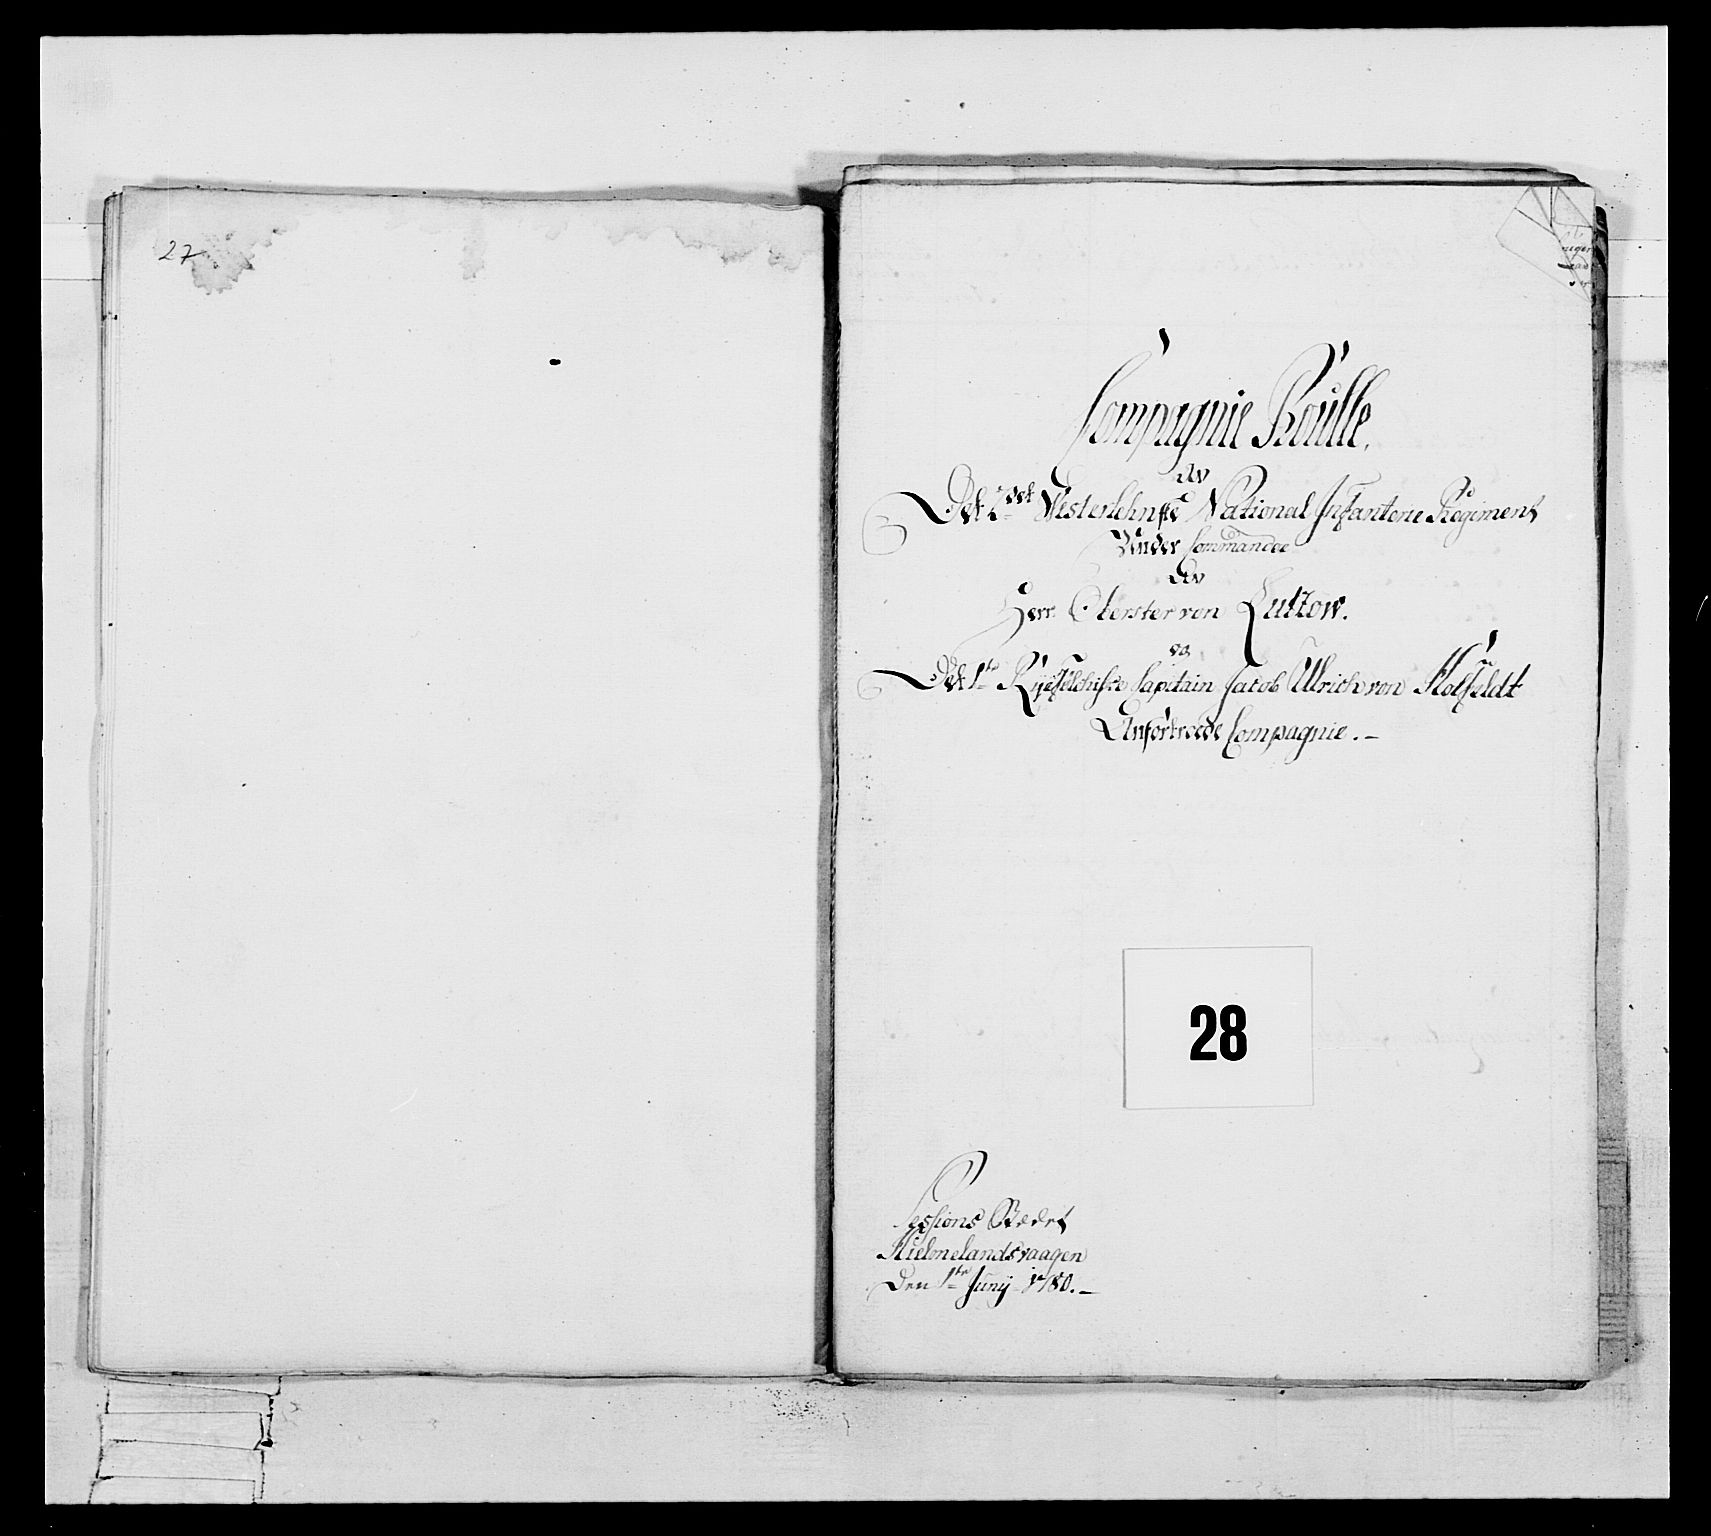 27
Compagnie Roulle.
av
Det 2det Vesterlehnske National Infanterie Regiment
Under Commandee
av
Herr Oberster von Lutzow.
og
Det 1te Ryefelchiske Capitain Jacob Ullrich von Kolfeldt
Anfortroede Compagnie.-
28
Sessions Stedet
Hielmelandsvaagen
Den 1te Junij 1780.-